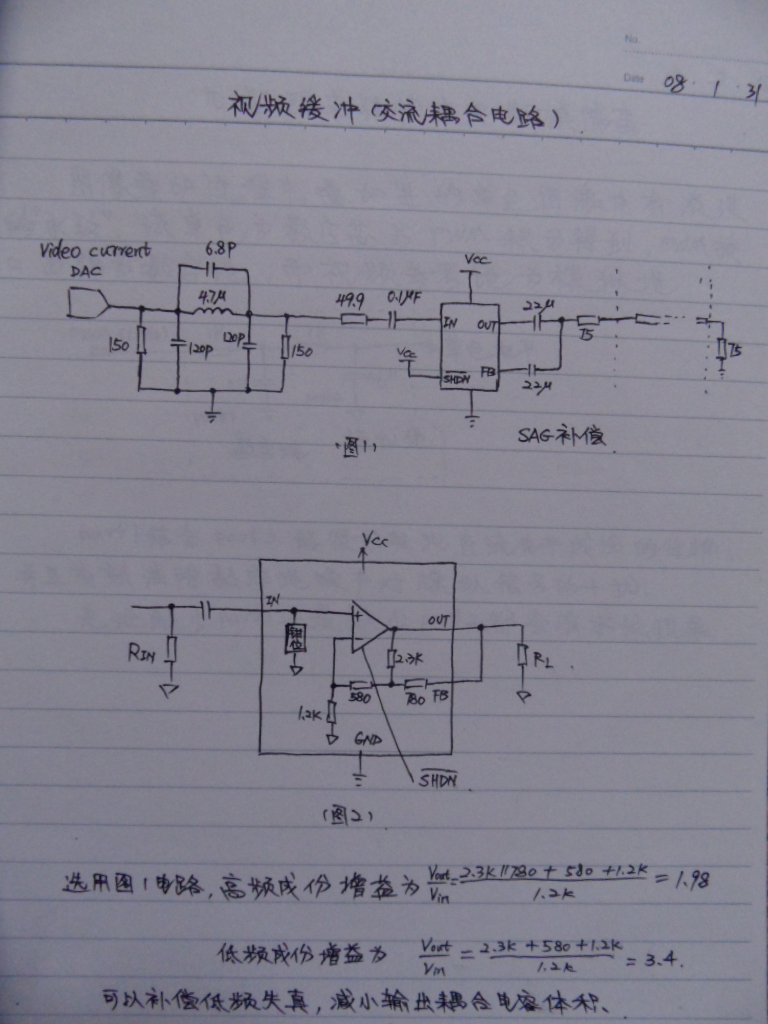 No.
Date 08. 1 31
视频缓冲(交流耦合电路)
Video current
DAC
6.8P
4.7μ
150
120P
120P
150
49.9
0.1μF
Vcc
IN
OUT
Vcc
SHDN
FB
22μ
22μ
75
75
(图1)
SAG补偿
Vcc
IN
OUT
RIN
钳位
2.3K
580
780
FB
RL
1.2K
GND
SHDN
(图2)
选用图1电路,高频成份增益为 Vout/Vin = (2.3K//780 + 580 + 1.2K)/1.2K = 1.98
低频成份增益为 Vout/Vin = (2.3K + 580 + 1.2K)/1.2K = 3.4.
可以补偿低频失真,减小输出耦合电容体积、